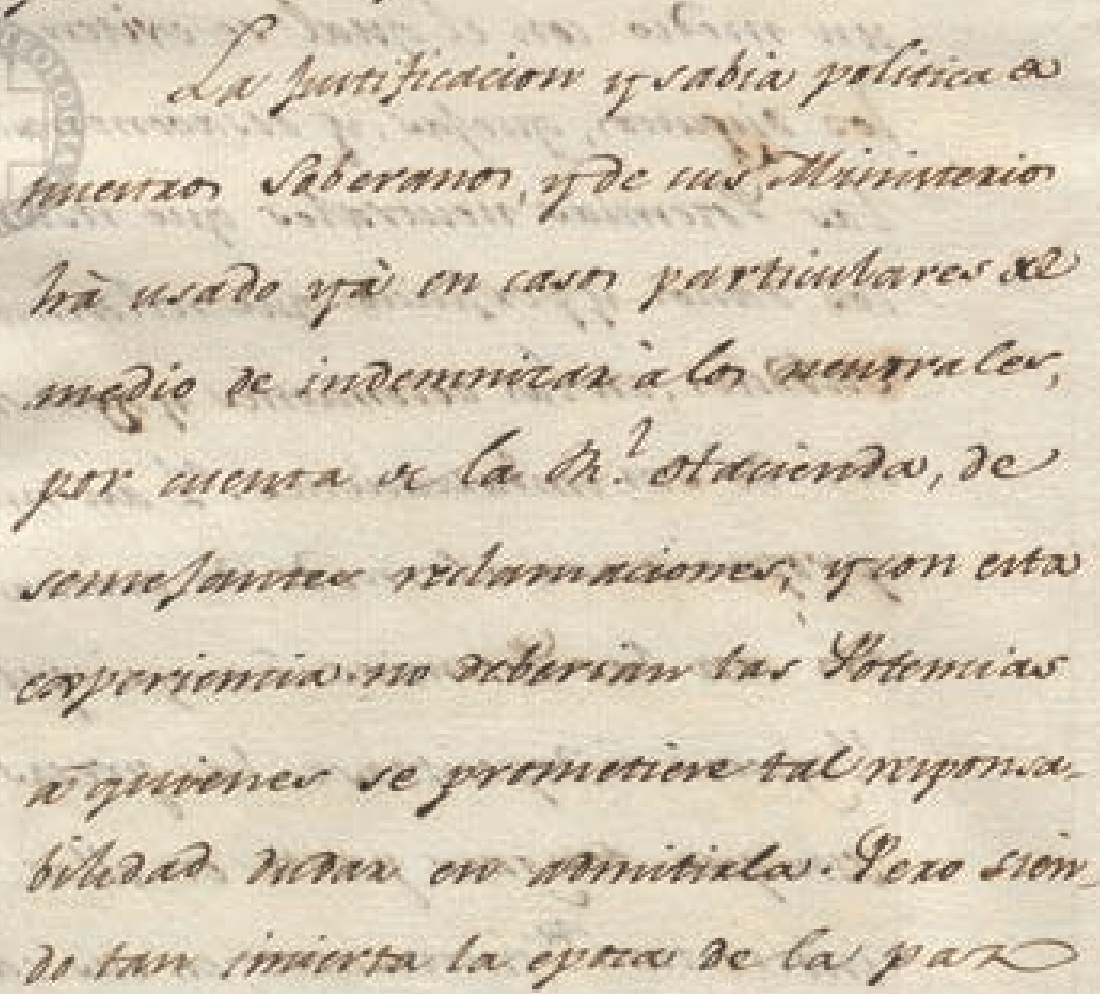 La justificacion y sabia politica de
nuestros Soberanos, y de sus Ministerios
hà usado yà en casos particulares del
medio de indemnizar à los neutrales,
por cuenta de la Rl. Hacienda, de
semejantes reclamaciones; y con esta
experiencia no deberian las Potencias
à quienes se prometiere tal responsa-
bilidad dudar en admitirla. Pero sien-
do tan incierta la epoca de la paz